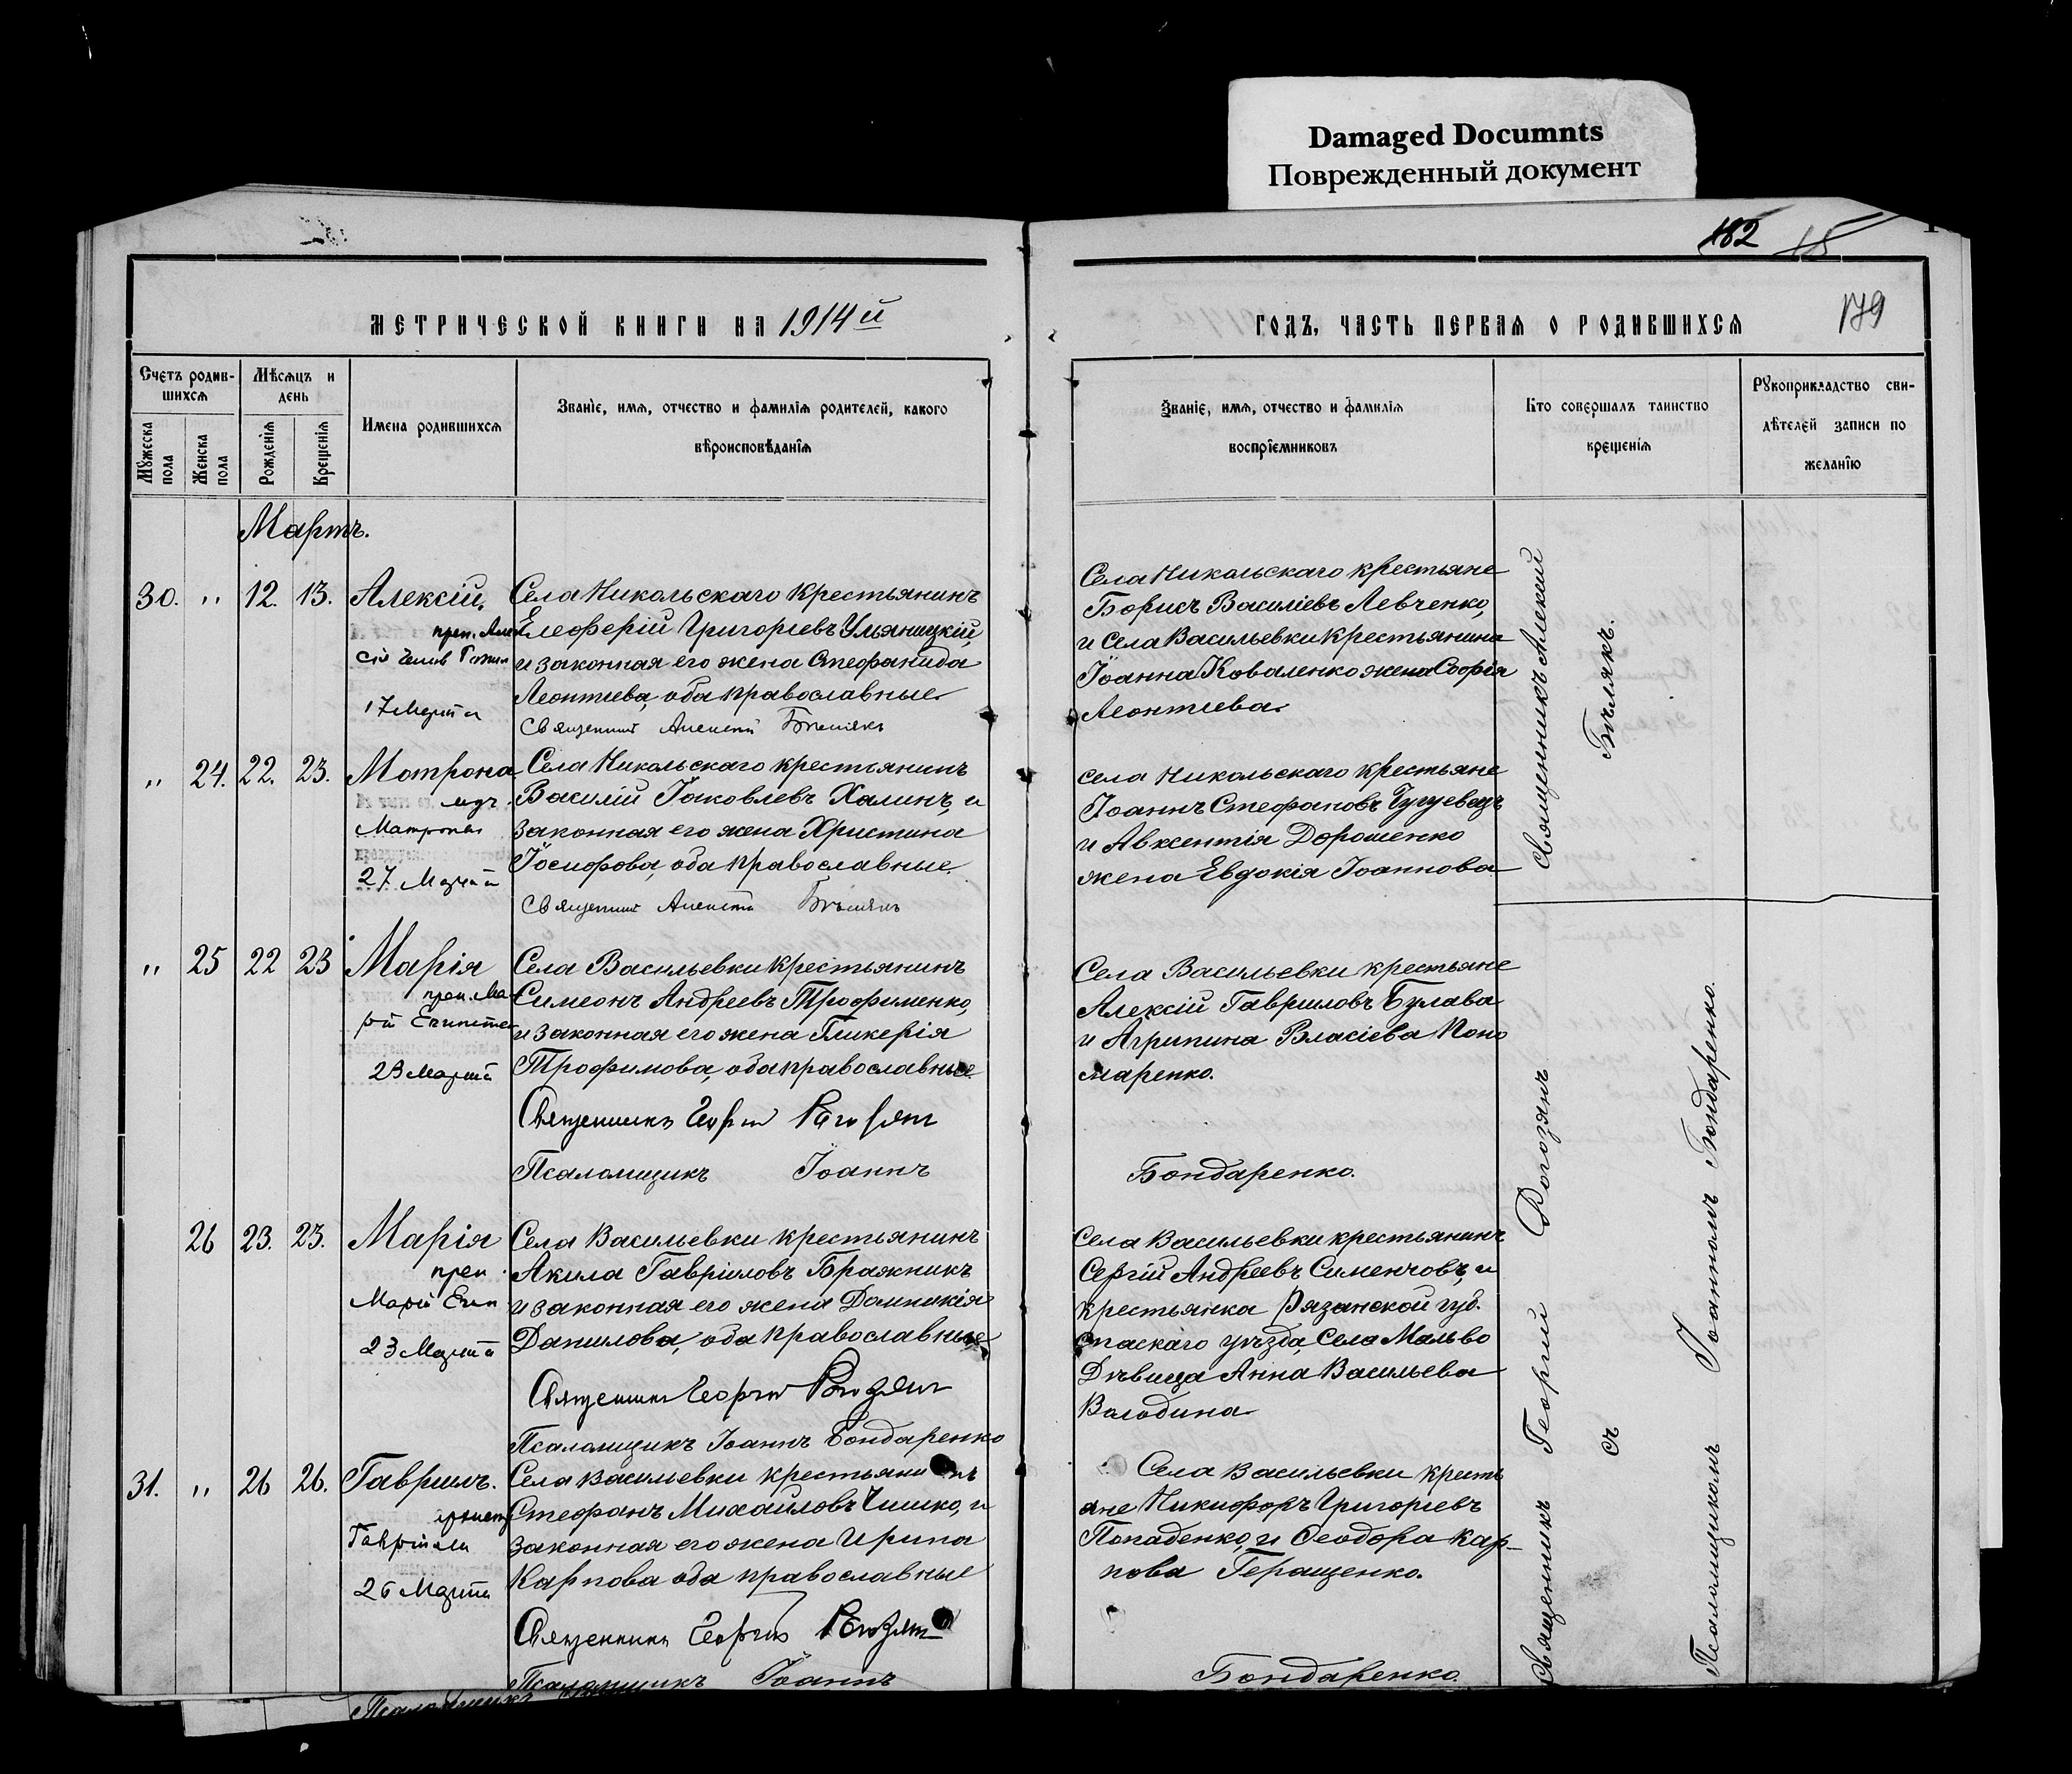 Damaged Documnts
Поврежденный документ
182 18
МЕТРИЧЕСКОЙ КНИГИ НА 1914й
ГОДЪ, ЧАСТЬ ПЕРВАЯ О РОДИВШИХСЯ
179
Счетъ родив-
шихся
Мѣсяцъ и
день
Имена родившихся
Званіе, имя, отчество и фамилія родителей, какого
вѣроисповѣданія
Мужеска
пола
Женска
пола
Рожденія
Крещенія
Званіе, имя, отчество и фамилія
воспріемниковъ
Кто совершалъ таинство
крещенія
Рукоприкладство сви-
дѣтелей записи по
желанію
Мартъ.
30. " 12. 13. Алексій,
преп. Алек
сія Челов Божія
17 Марта
Села Никольскаго крестьянинъ
Елеоферій Григорiевъ Ульяницкій,
и законная его жена Стефанида
Леонтiева, оба православные.
Священник Алексій Бѣлякъ
Села Никольскаго крестьяне
Борисъ Василіевъ Левченко,
и села Васильевки крестьянина
Іоанна Коваленко жена Софія
Леонтiева.
" 24. 22. 23. Матрона
муч.
Матроны
27 Марта
Села Никольскаго крестьянинъ
Василій Іаковлевъ Халинъ, и
законная его жена Христина
Іосифова, оба православные.
Священник Алексій Бѣлякъ
села Никольскаго крестьяне
Іоаннъ Стефановъ Чугуевецъ
и Авксентія Дорошенко
жена Евдокія Іоаннова
Священникъ Алексій
Бѣлякъ.
" 25 22 23 Марія
преп. Ма-
рія Египетск
23 Марта
Села Васильевки крестьянинъ
Симеонъ Андреевъ Трофименко,
и законная его жена Гликерія
Трофимова, оба православные
Священникъ Георгій Рогозянъ
Псаломщикъ Іоаннъ
Села Васильевки крестьяне
Алексій Гавриловъ Булава
и Агрипина Власіева Поно
маренко.
Бондаренко.
26 23. 23. Марія
преп.
Марія Егип
23 Марта
Села Васильевки крестьянинъ
Акила Гавріиловъ Бражникъ
и законная его жена Домникія
Данилова, оба православные
Священникъ Георгій Рогозянъ
Псаломщикъ Іоаннъ Бондаренко
Села Васильевки крестьянинъ
Сергій Андреевъ Сименчовъ, и
крестьянка Рязанской губ.
спаскаго уѣзда, села Мальво
Дѣвица Анна Васильева
Володина
31. " 26 26. Гавриилъ.
Гавріила
26 Марта
Села Васильевки крестьянинъ
Стефанъ Михайловъ Чишко, и
законная его жена Ирина
Карпова оба православные
Священникъ Георгій Рогозянъ
Псаломщикъ Іоаннъ
Села Васильевки кресть
яне Никифоръ Григорiевъ
Попаденко, и Ѳеодора Кар-
пова Геращенко.
Бондаренко.
Священникъ Георгій Рогозянъ
съ
Псаломщикомъ Іоанномъ Бондаренко.
Псаломщикъ